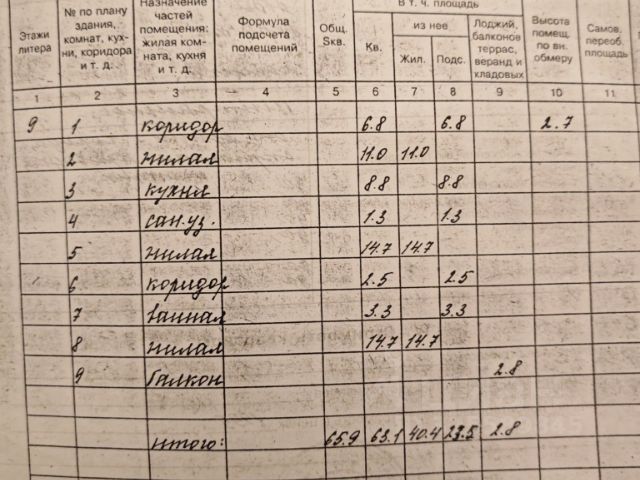 В т. ч. площадь
Этажи литера | № по плану здания, комнат, кухни, коридора и т. д. | Назначение частей помещения: жилая комната, кухня и т. д. | Формула подсчета помещений | Общ. Sкв. | Кв. | из нее | Жил. | Подс. | Лоджий, балконов террас, веранд и кладовых | Высота помещ. по вн. обмеру | Самов. переоб. площадь
1 2 3 4 5 6 7 8 9 10 11
9 1 коридор 6.8 6.8 2.7
2 жилая 11.0 11.0
3 кухня 8.8 8.8
4 сан.уз. 1.3 1.3
5 жилая 14.7 14.7
6 коридор 2.5 2.5
7 ванная 3.3 3.3
8 жилая 14.7 14.7
9 балкон 2.8
итого: 65.9 63.1 40.4 2.8